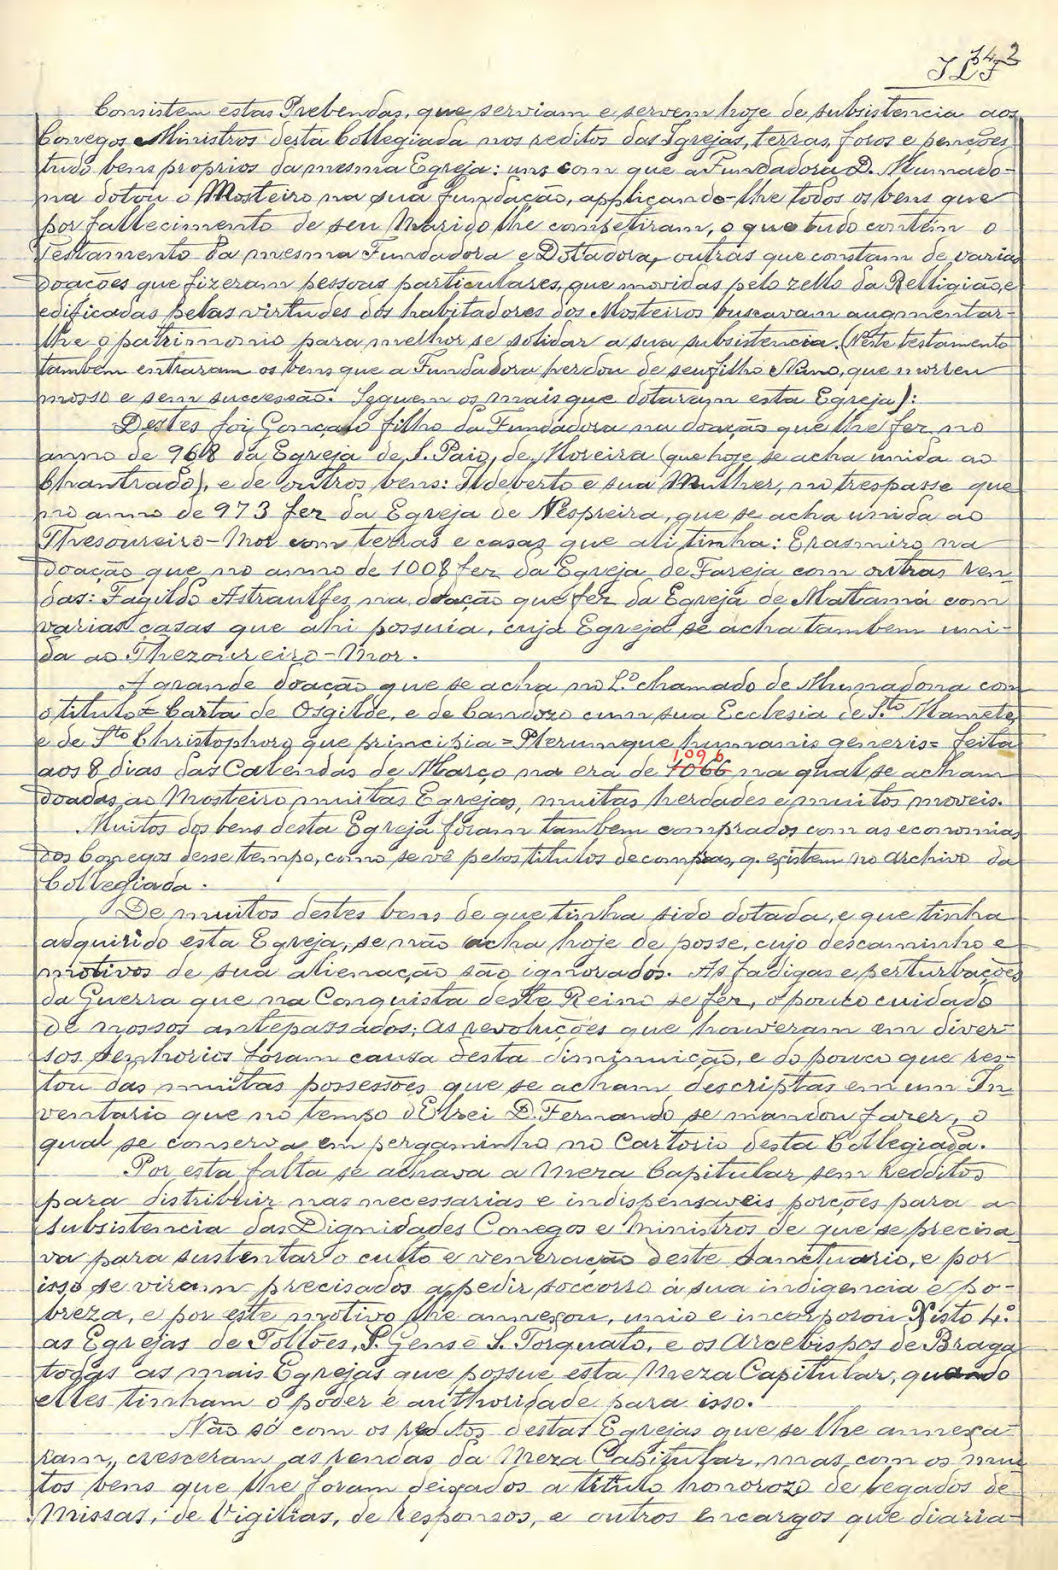 342
Consistem estas Prebendas, que serviam e servem hoje de subsistencia aos
Conegos Ministros desta Collegiada nos reditos das Igrejas, terras, foros e penções
tudo bens proprios da mesma Egreja: uns com que a Fundadora D. Mumado-
na dotou o Mosteiro na sua fundação, applicando-lhe todos os bens que
por fallecimento de seu Marido lhe competiram, o que tudo contem o
Testamento da mesma Fundadora e Dotadora, outras que constam de varias
doações que fizeram pessoas particulares, que movidas pelo zello da Relligião, e
edificadas pelas virtudes dos habitadores dos Mosteiros buscavam augmentar-
lhe o patrimonio para melhor se solidar a sua subsistencia. (Neste testamento
tambem entraram os bens que a Fundadora herdou de seu filho Nuno, que morreu
mosso e sem successão: Seguem os mais que dotaram esta Egreja):
Destes foi Gonçalo filho da Fundadora na doação que lhe fez no
anno de 968 da Egreja de S. Paio, de Moreira (que hoje se acha unida ao
Chantrado), e de outros bens: Ildeberto e sua Mulher, no trespasse que
no anno de 973 fez da Egreja de Nespreira, que se acha unida ao
Thesoureiro-Mor com terras e casas que ali tinha: Erasmiro na
doação que no anno de 1008 fez da Egreja de Fareja com outras ren-
das: Fagildo Astraulfes na doação que fez da Egreja de Matamá com
varias casas que ahi possuia, cuja Egreja se acha tambem uni-
da ao Thezoureiro-Mor.
A grande doação que se acha no L.º chamado de Mumadona com
o titulo = Carta de Osgilde, e de Candozo cum sua Ecclesia de S.to Mamete,
e de S.to Christophoro que principia = Plerumque humanis generis = feita
aos 8 dias das Calendas de Março na era de 1066 1096 na qual se acham
doadas ao Mosteiro muitas Egrejas, muitas herdades e muitos moveis.
Muitos dos bens desta Egreja foram tambem comprados com as economias
dos Conegos desse tempo, como se vê pelos titulos de compras, q. existem no archivo da
Collegiada.
De muitos destes bens de que tinha sido dotada, e que tinha
adquirido esta Egreja, se não acha hoje de posse, cujo descaminho e
motivos de sua alienação são ignorados. As fadigas e perturbações
da Guerra que na Conquista deste Reino se fez, o pouco cuidado
de nossos antepassados; as revoluções que houveram em diver-
sos senhorios foram causa desta diminuição, e do pouco que res-
tou das muitas possessões que se acham descriptas em um In-
ventario que no tempo d'Elrei D. Fernando se mandou fazer, o
qual se conserva em pergaminho no Cartorio desta Collegiada.
Por esta falta se achava a Meza Capitular sem Redditos
para distribuir nas necessarias e indispensaveis porções para a
subsistencia das Dignidades Conegos e Ministros de que se precisa-
va para sustentar o culto e veneração deste Sanctuario, e por
isso se viram precisados a pedir soccorro á sua indigencia e po-
breza, e por este motivo lhe annexou, unio e incorporou Xisto 4.º
as Egrejas de Tollões, S. Gens e S. Torquato, e os Arcebispos de Braga
todas as mais Egrejas que possue esta Meza Capitular, quando
elles tinham o poder e authoridade para isso.
Não só com os reditos destas Egrejas que se lhe annexa-
ram, cresceram as rendas da Meza Capitular, mas com os mui-
tos bens que lhe foram deixados a titulo honorozo de legados de
Missas, de Vigilias, de responsos, e outros encargos que diaria-